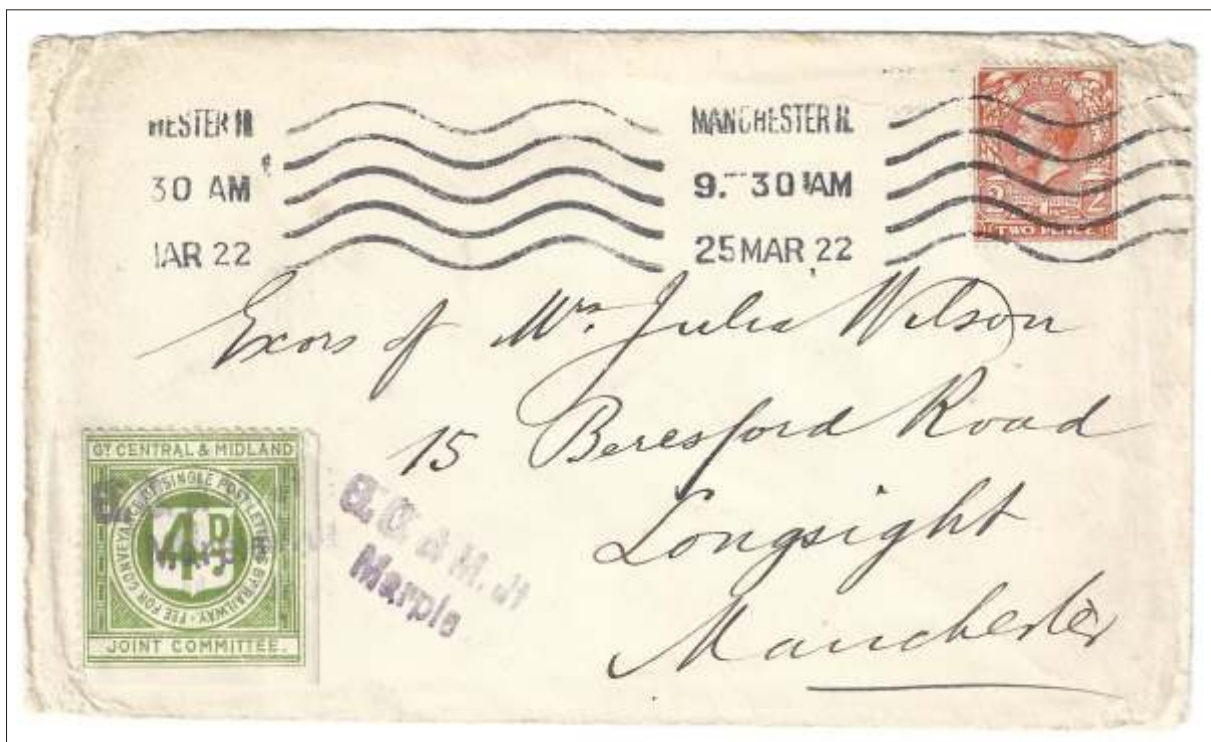 HESTER
30 AM
AR 22
MANCHESTER
9. 30 AM
25 MAR 22
2 2
TWO PENCE
Excors of Mrs. Julia Wilson
15 Beresford Road
Longsight
Manchester
GT CENTRAL & MIDLAND
FEE FOR CONVEYANCE OF SINGLE POST LETTERS BY RAILWAY
4D
JOINT COMMITTEE.
G. C. & M. Jt
Marple